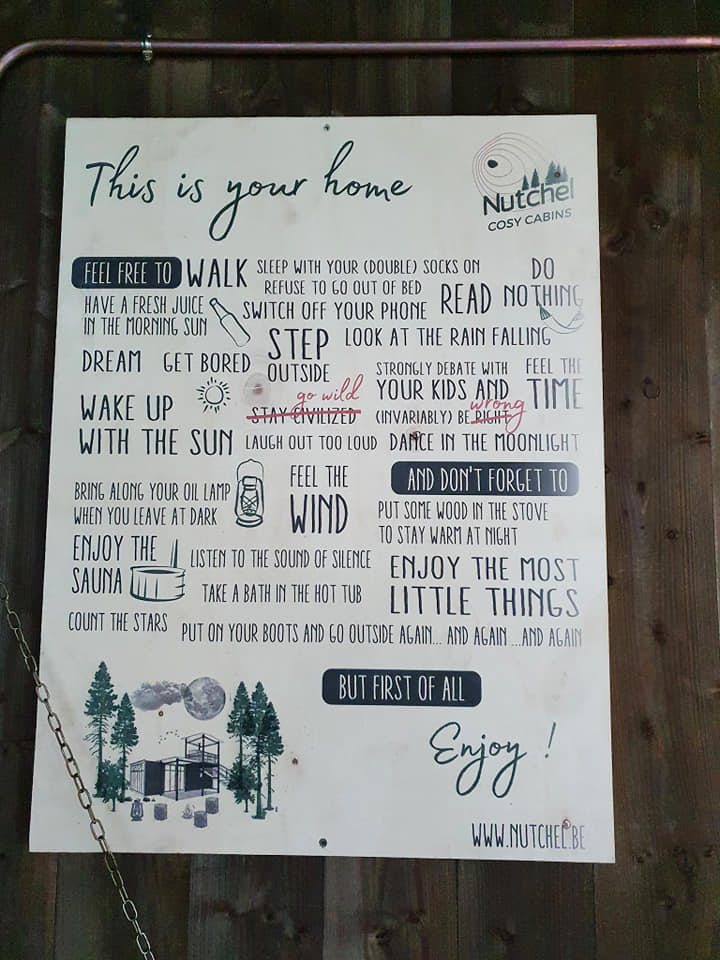 This is your home
Nutchel
COSY CABINS
FEEL FREE TO
WALK
SLEEP WITH YOUR (DOUBLE) SOCKS ON
REFUSE TO GO OUT OF BED
DO
NOTHING
HAVE A FRESH JUICE
IN THE MORNING SUN
SWITCH OFF YOUR PHONE
READ
STEP
OUTSIDE
LOOK AT THE RAIN FALLING
DREAM
GET BORED
STRONGLY DEBATE WITH
YOUR KIDS AND
wrong
(INVARIABLY) BE RIGHT
FEEL THE
TIME
WAKE UP
WITH THE SUN
go wild
STAY CIVILIZED
LAUGH OUT TOO LOUD
DANCE IN THE MOONLIGHT
BRING ALONG YOUR OIL LAMP
WHEN YOU LEAVE AT DARK
FEEL THE
WIND
AND DON'T FORGET TO
PUT SOME WOOD IN THE STOVE
TO STAY WARM AT NIGHT
ENJOY THE
SAUNA
LISTEN TO THE SOUND OF SILENCE
TAKE A BATH IN THE HOT TUB
ENJOY THE MOST
LITTLE THINGS
COUNT THE STARS
PUT ON YOUR BOOTS AND GO OUTSIDE AGAIN... AND AGAIN ...AND AGAIN
BUT FIRST OF ALL
Enjoy !
WWW.NUTCHEL.BE